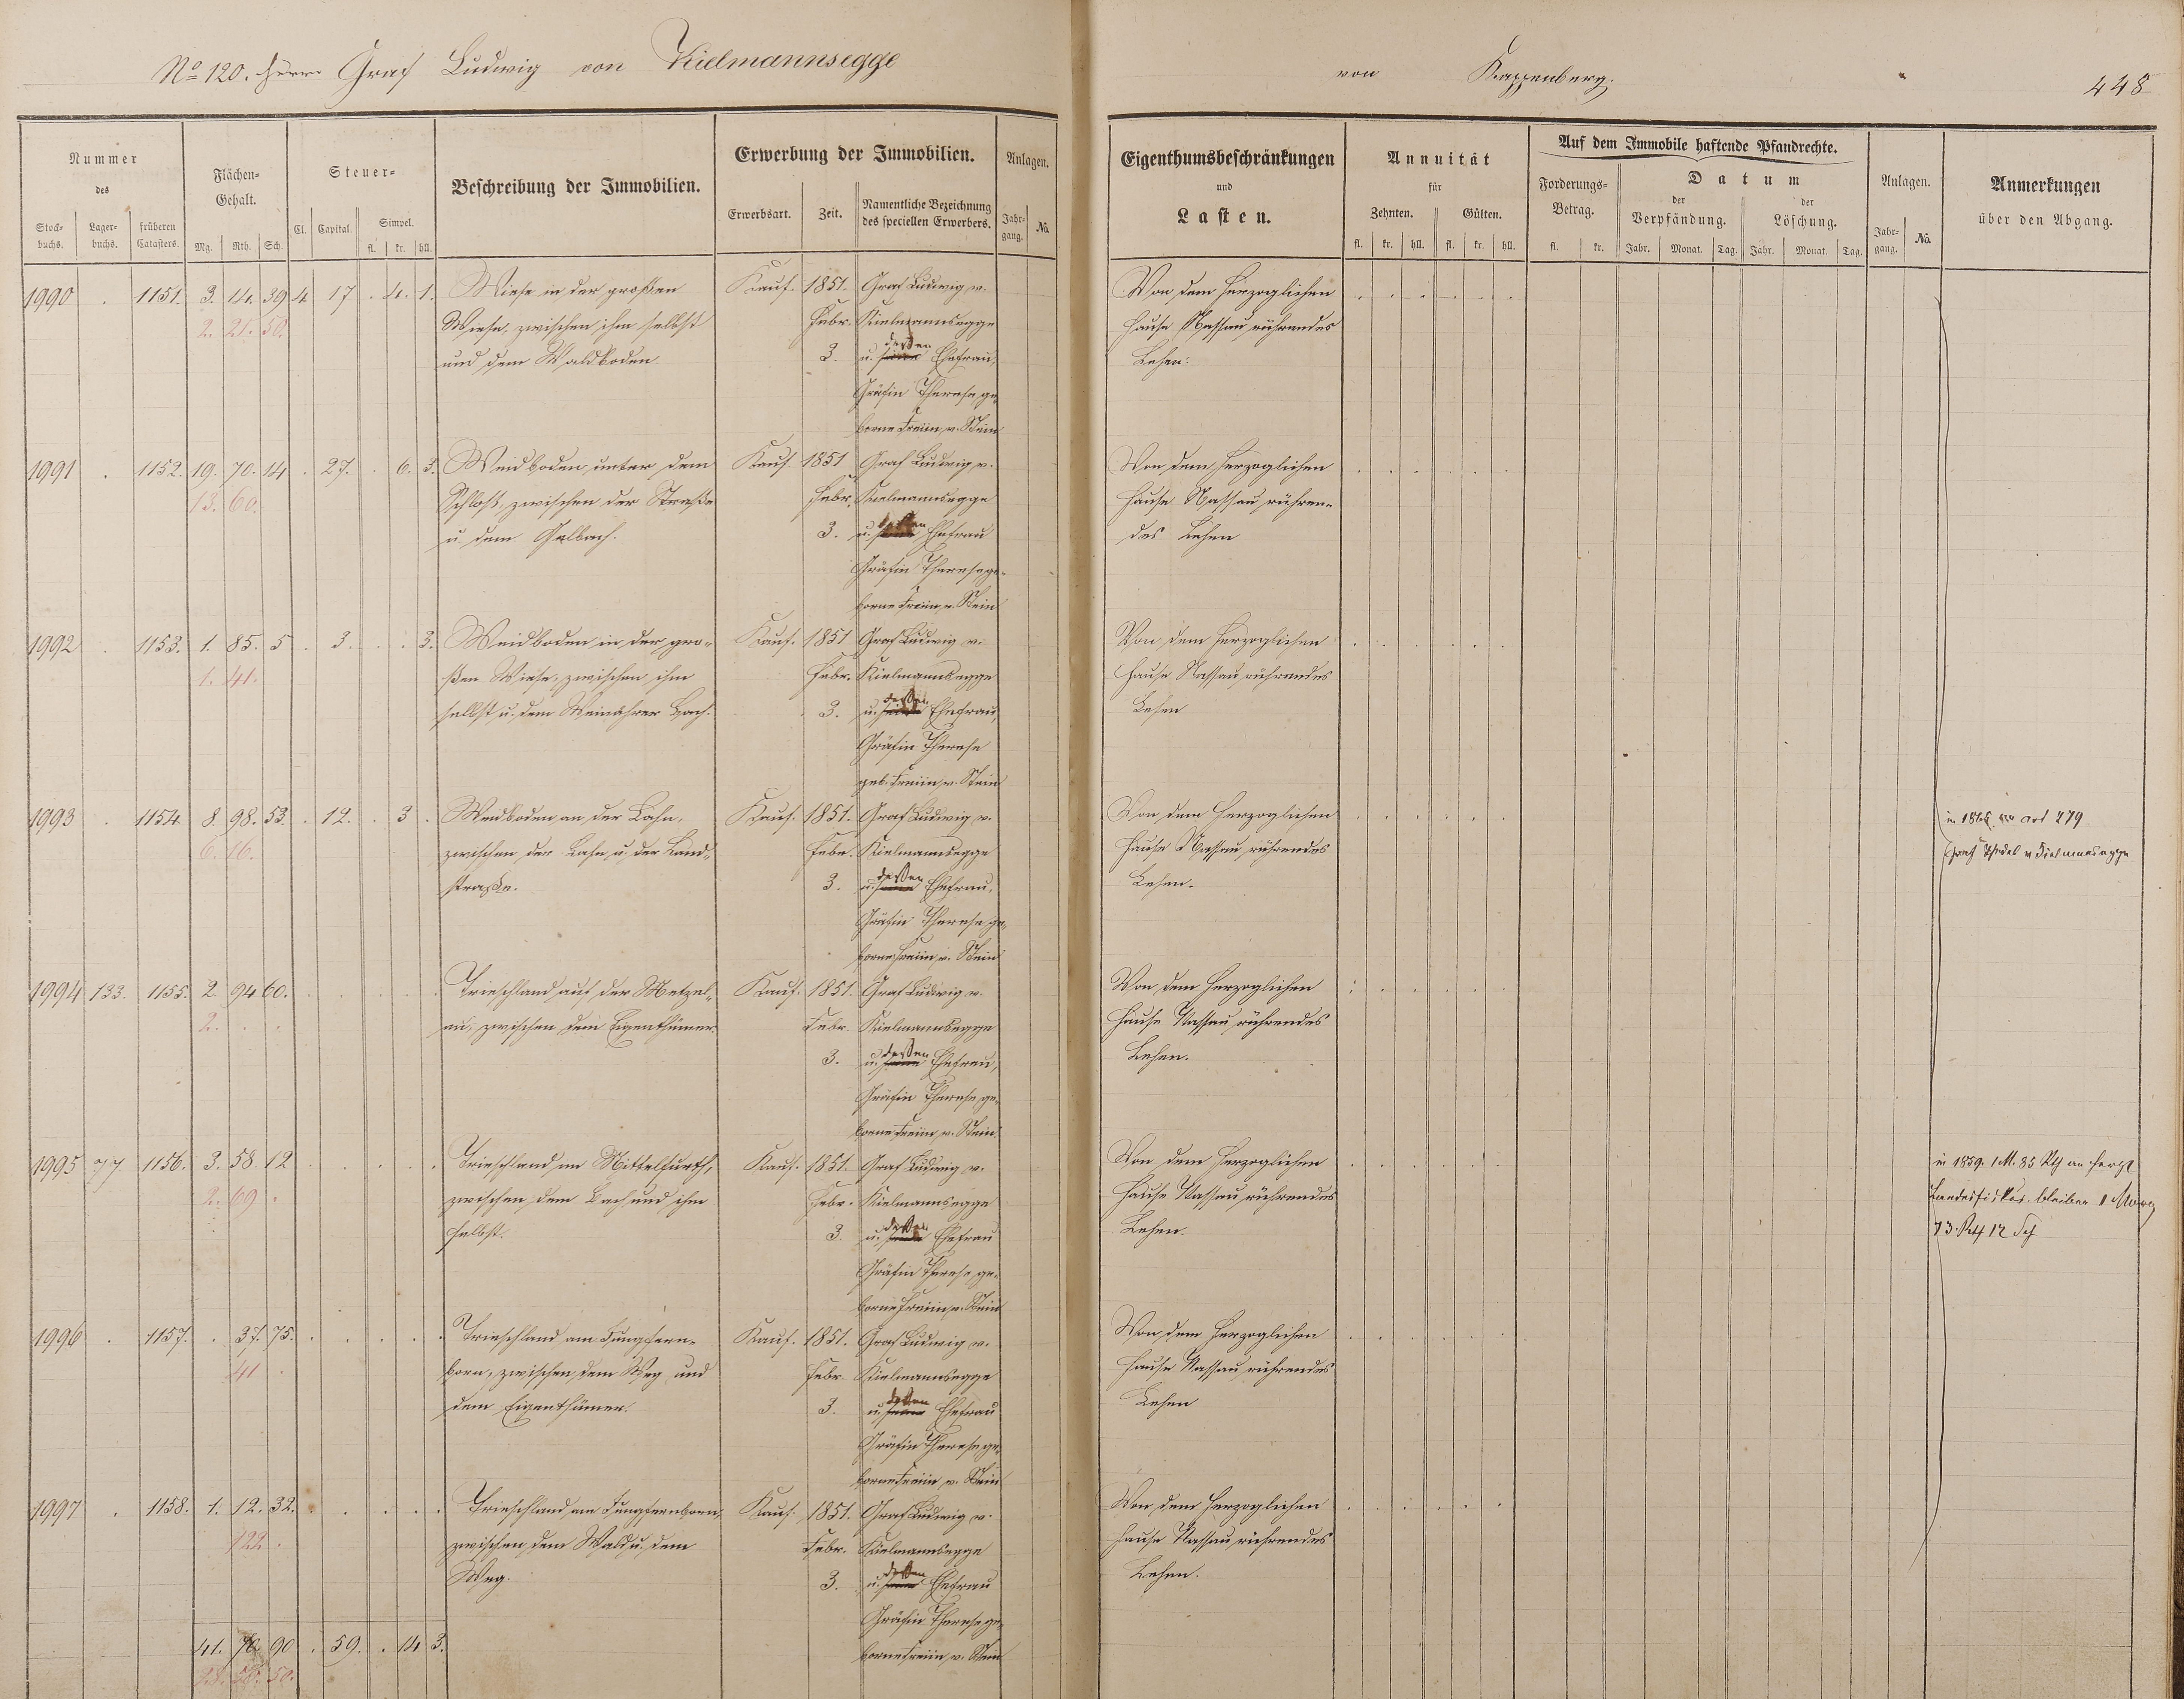 No 120. Herr Graf Ludwig von Kielmannsegge
von Kappenberg.
448
Nummer
des
Stock-
buchs.
Lager-
buchs.
früheren
Catasters.
Flächen-
Gehalt.
Mg. Rth. Sch.
Steuer-
Cl. Capital. Simpel.
fl. kr. hll.
Beschreibung der Immobilien.
Erwerbung der Immobilien.
Erwerbsart. Zeit. Namentliche Bezeichnung
des speciellen Erwerbers.
Anlagen.
Jahr-
gang. No.
Eigenthumsbeschränkungen
und
Lasten.
Annuität
für
Zehnten. Gülten.
fl. kr. hll. fl. kr. hll.
Auf dem Immobile haftende Pfandrechte.
Forderungs-
Betrag.
fl. kr.
Datum
der
Verpfändung.
der
Löschung.
Jahr. Monat. Tag. Jahr. Monat. Tag.
Anlagen.
Jahr-
gang. No.
Anmerkungen
über den Abgang.
1990 . 1151. 3. 14. 39 4 17 . 4. 1. Wiese in der großen Kauf. 1851. Graf Ludwig v. Von dem Herzoglichen
2. 21. 50. Wiese, zwischen ihm selbst Febr. Kielmannsegge Hause Nassau rührendes
und dem Waldboden. 3. u. seine dessen Ehefrau, Lehen.
Gräfin Therese ge-
borne Freiin v. Stein
1991 . 1152. 19. 70. 14 . 27. . 6. 3. Weidboden unter dem Kauf. 1851 Graf Ludwig v. Von dem Herzoglichen
13. 60. Schloß, zwischen der Straße Febr. Kielmannsegge Hause Nassau rühren-
u. dem Gelbach. 3. u. seine dessen Ehefrau des Lehen
Gräfin Therese ge-
borne Freiin v. Stein
1992 . 1153. 1. 85. 5 . 3. . . 3. Weidboden in der gro- Kauf. 1851 Graf Ludwig v. Von dem Herzoglichen
1. 41. ßen Wiese, zwischen ihm Febr. Kielmannsegge Hause Nassau rührendes
selbst u. dem Weinährer Bach. 3. u. seine dessen Ehefrau, Lehen
Gräfin Therese
geb. Freiin v. Stein
1993 . 1154 8. 98. 53. . 12. . 3 . Weidboden an der Lahn, Kauf. 1851. Graf Ludwig v. Von dem Herzoglichen
6. 16. zwischen der Lahn u. der Land- Febr. Kielmannsegge Hause Nassau rührendes
straße. 3. u. seine dessen Ehefrau, Lehen.
Gräfin Therese ge-
borne Freiin v. Stein
art 279
Graf v Kielmansegge
1994 133. 1155. 2. 94 60. Trieschland auf der Metzel- Kauf. 1851. Graf Ludwig v. Von dem Herzoglichen
2. . . au, zwischen dem Eigenthümer Febr. Kielmannsegge Hause Nassau rührendes
3. u. seine dessen Ehefrau, Lehen.
Gräfin Therese ge-
borne Freiin v. Stein.
1995 77. 1156. 3. 58. 12 Trieschland im Mittelfurth, Kauf. 1851. Graf Ludwig v. Von dem Herzoglichen
2. 69 . zwischen dem Bach und ihm Febr. Kielmannsegge Hause Nassau rührendes
selbst. 3. u. seine dessen Ehefrau Lehen.
Gräfin Therese ge-
borne Freiin v. Stein
in 1859. 1 M. 85 Rth an Herzl
Landesfiskus. bleiben 1 Morg
73 Rth 12 Sch
1996 . 1157. . 37. 75. Trieschland am Jungfern- Kauf. 1851. Graf Ludwig v. Von dem Herzoglichen
41 . born, zwischen dem Weg und Febr. Kielmannsegge Hause Nassau rührendes
dem Eigenthümer. 3. u. seine dessen Ehefrau Lehen
Gräfin Therese ge-
borne Freiin v. Stein
1997 . 1158. 1. 12. 32. Trieschland am Jungfernborn, Kauf. 1851. Graf Ludwig v. Von dem Herzoglichen
122 . zwischen dem Wald u. dem Febr. Kielmannsegge Hause Nassau rührendes
Weg. 3. u. seine dessen Ehefrau Lehen.
Gräfin Therese ge-
borne Freiin v. Stein
41. 70. 90 . 59. . 14 3.
50.